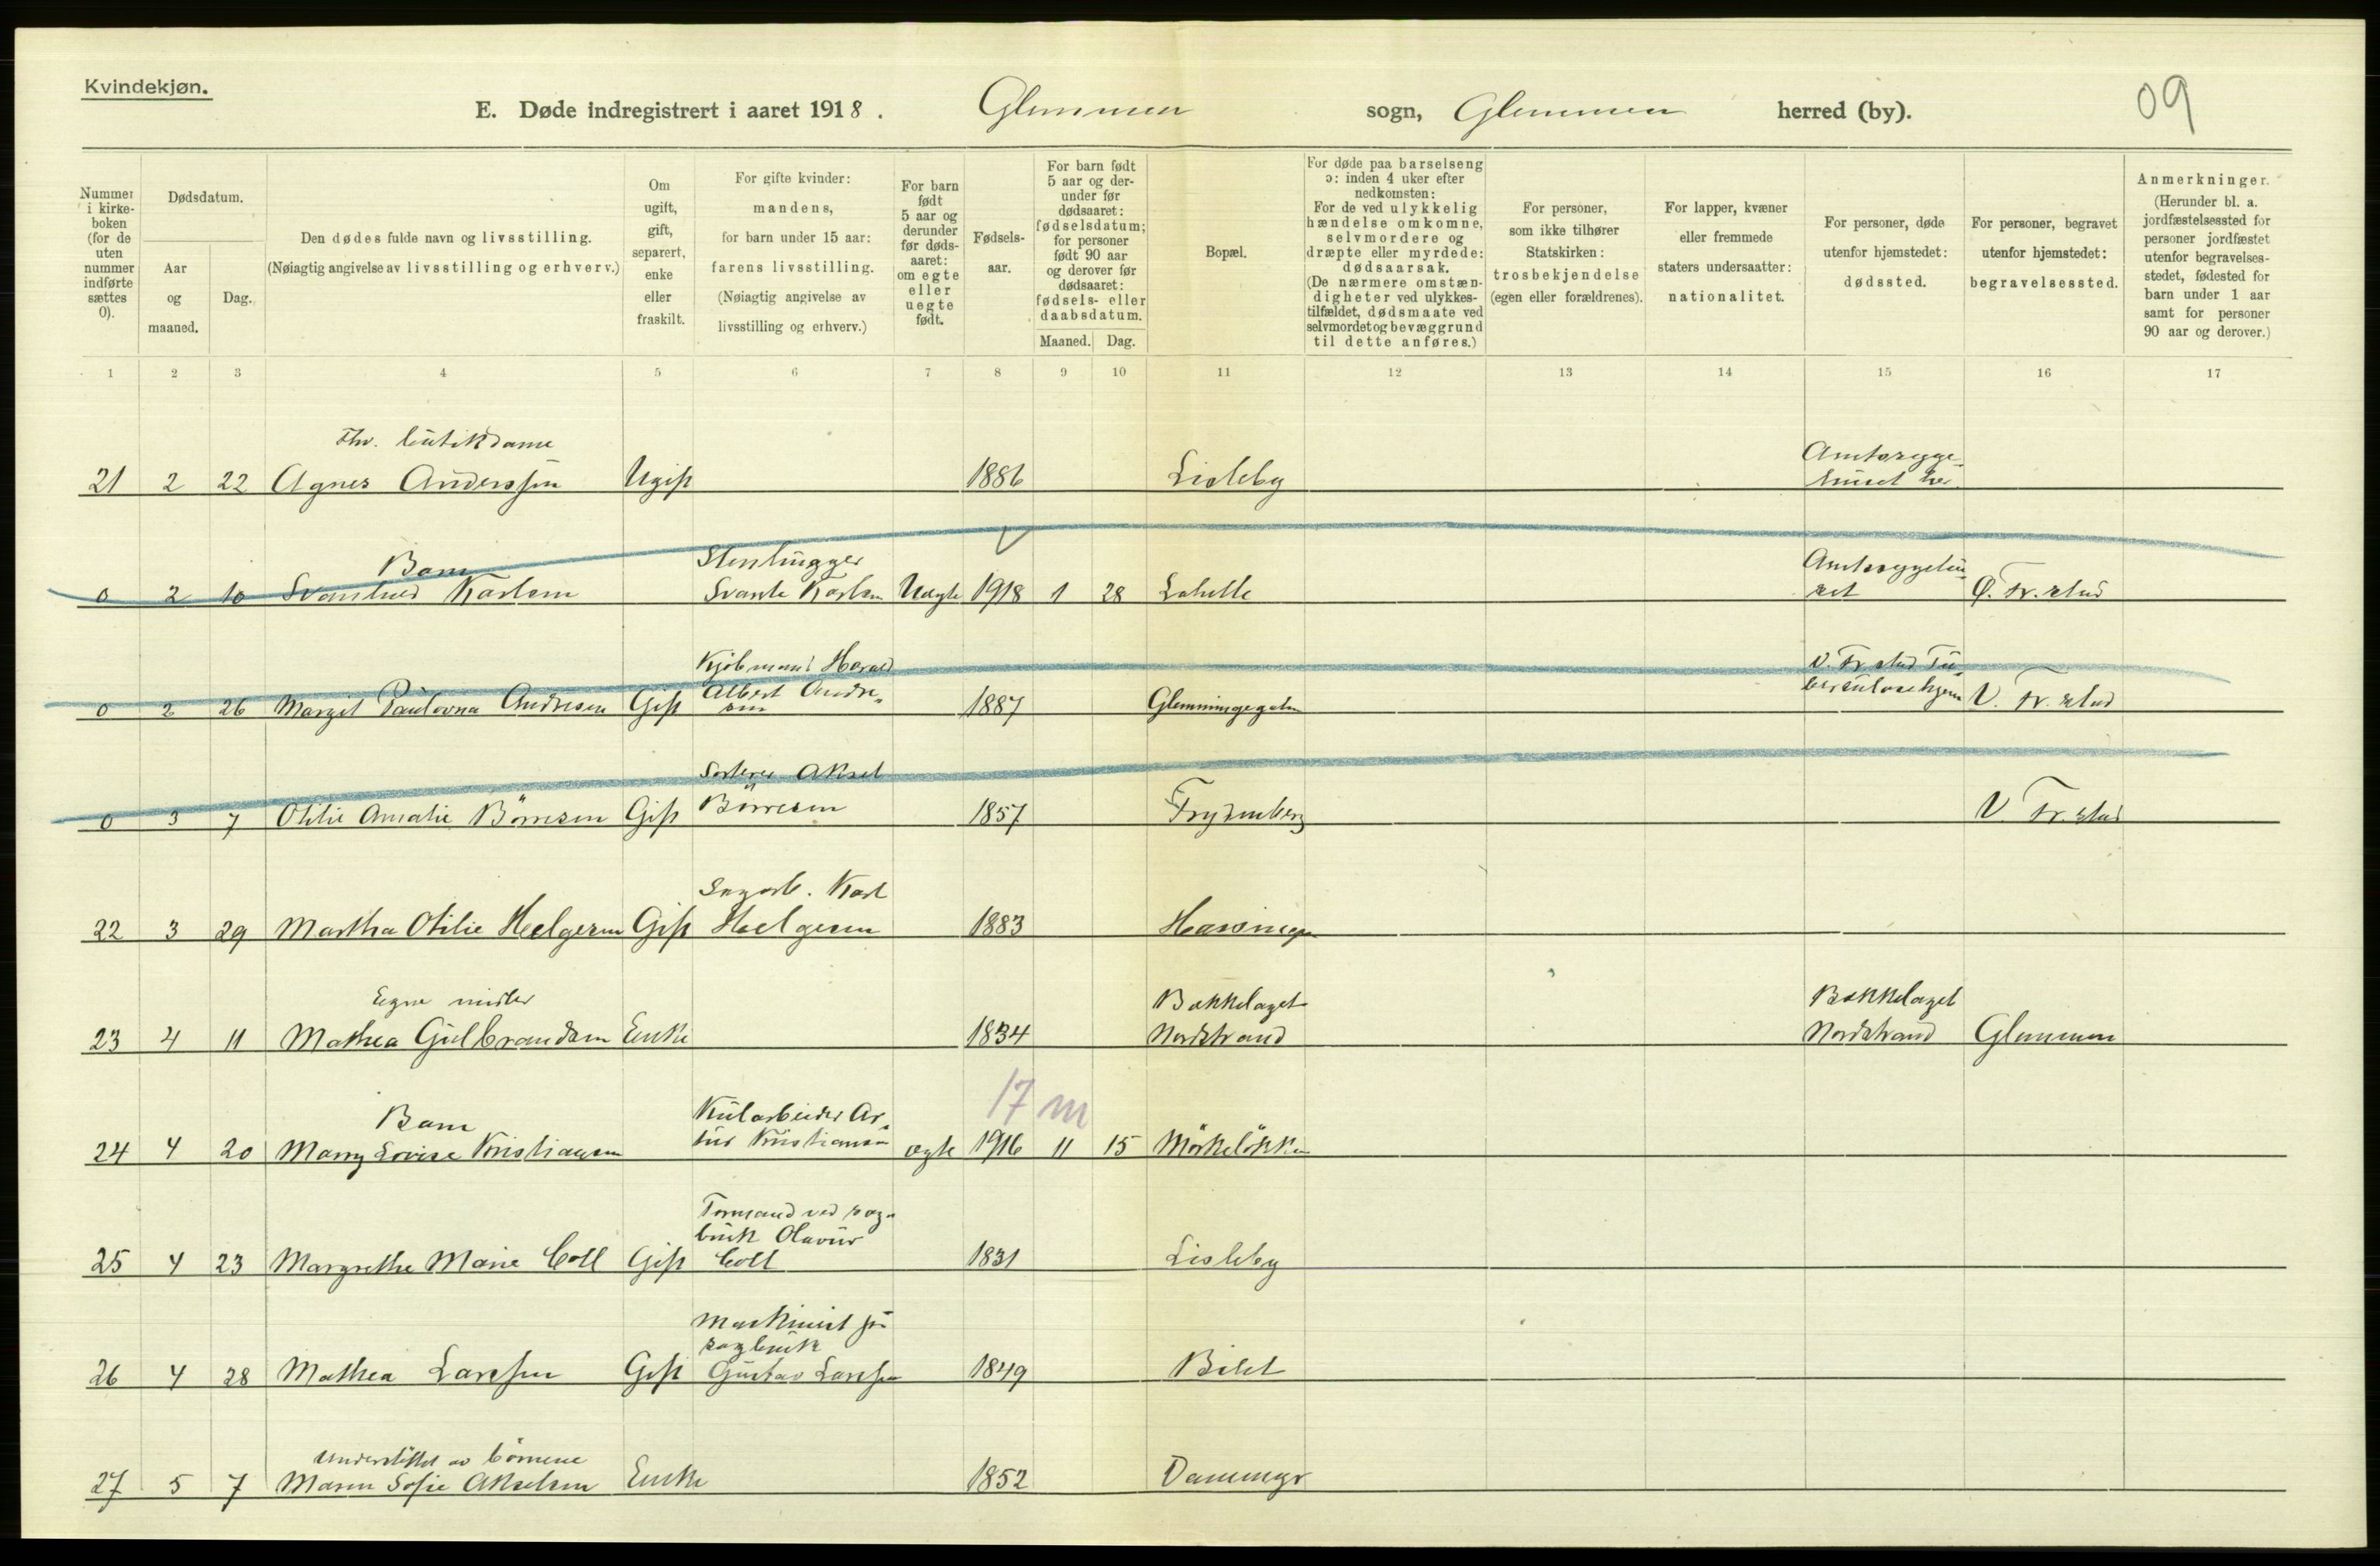 Kvindekjøn.
E. Døde indregistrert i aaret 1918. Glemmen sogn, Glemmen herred (by).
09
Nummer i kirkeboken (for de uten nummer indførte sættes 0).
Dødsdatum.
Aar og maaned.
Dag.
Den dødes fulde navn og livsstilling.
(Nøiagtig angivelse av livsstilling og erhverv.)
Om ugift, gift, separert, enke eller fraskilt.
For gifte kvinder: mandens, for barn under 15 aar: farens livsstilling.
(Nøiagtig angivelse av livsstilling og erhverv.)
For barn født 5 aar og derunder før dødsaaret: om egte eller uegte født.
Fødselsaar.
For barn født 5 aar og derunder før dødsaaret: fødselsdatum; for personer født 90 aar og derover før dødsaaret: fødsels- eller daabsdatum.
Maaned. Dag.
Bopæl.
For døde paa barselseng ɔ: inden 4 uker efter nedkomsten:
For de ved ulykkelig hændelse omkomne, selvmordere og dræpte eller myrdede: dødsaarsak.
(De nærmere omstændigheter ved ulykkestilfældet, dødsmaate ved selvmordet og bevæggrund til dette anføres.)
For personer, som ikke tilhører Statskirken: trosbekjendelse (egen eller forældrenes).
For lapper, kvæner eller fremmede staters undersaatter: nationalitet.
For personer, døde utenfor hjemstedet: dødssted.
For personer, begravet utenfor hjemstedet: begravelsessted.
Anmerkninger.
(Herunder bl. a. jordfæstelsessted for personer jordfæstet utenfor begravelsesstedet, fødested for barn under 1 aar samt for personer 90 aar og derover.)
1 2 3 4 5 6 7 8 9 10 11 12 13 14 15 16 17
Fhv. butikdame
Amtssyge-
21 2 22 Agnes Anderssen Ugift 1886 Lisleby huset her
Barn Stenhugger Amtssygehu-
0 2 10 Svanhild Karlsen Svante Karlsen Uægte 1918 1 28 Lahelle set Ø. Fr.stad
Kjøbmand Harald V. Fr.stad Tu-
0 2 26 Margit Paulovna Andresen Gift Albert Andre- 1887 Glemmingegaten berkulosehjem V. Fr.stad
sen
Sorterer Aksel
0 3 7 Otilie Amalie Börresen Gift Börresen 1857 Frydenberg V. Fr.stad
Sagarb. Karl
22 3 29 Martha Otilie Helgesen Gift Helgesen 1883 Hassingen
Egne midler Bækkelaget Bækkelaget
23 4 11 Mathea Gulbrandsen Enke 1834 Nordstrand Nordstrand Glemmen
17 m
Barn Kularbeider Ar-
24 4 20 Marry Lovise Kristiansen tur Kristiansen ægte 1916 11 15 Mörkelökken
Formand ved sag-
bruk Olavur
25 4 23 Margrethe Marie Coll Gift Coll 1831 Lisleby
Maskinist på
sagbruk
26 4 28 Mathea Larssen Gift Gustav Larssen 1849 Bilet
Understöttet av börnene
27 5 7 Maren Sofie Akselsen Enke 1852 Dammyr